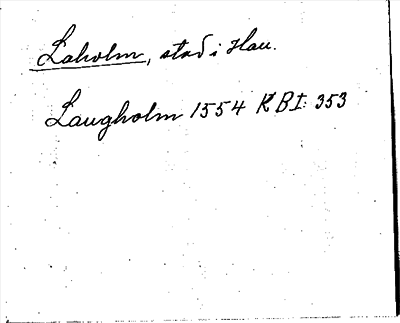 Laholm, stad i Hall.
Laugholm 1554 KBI: 353